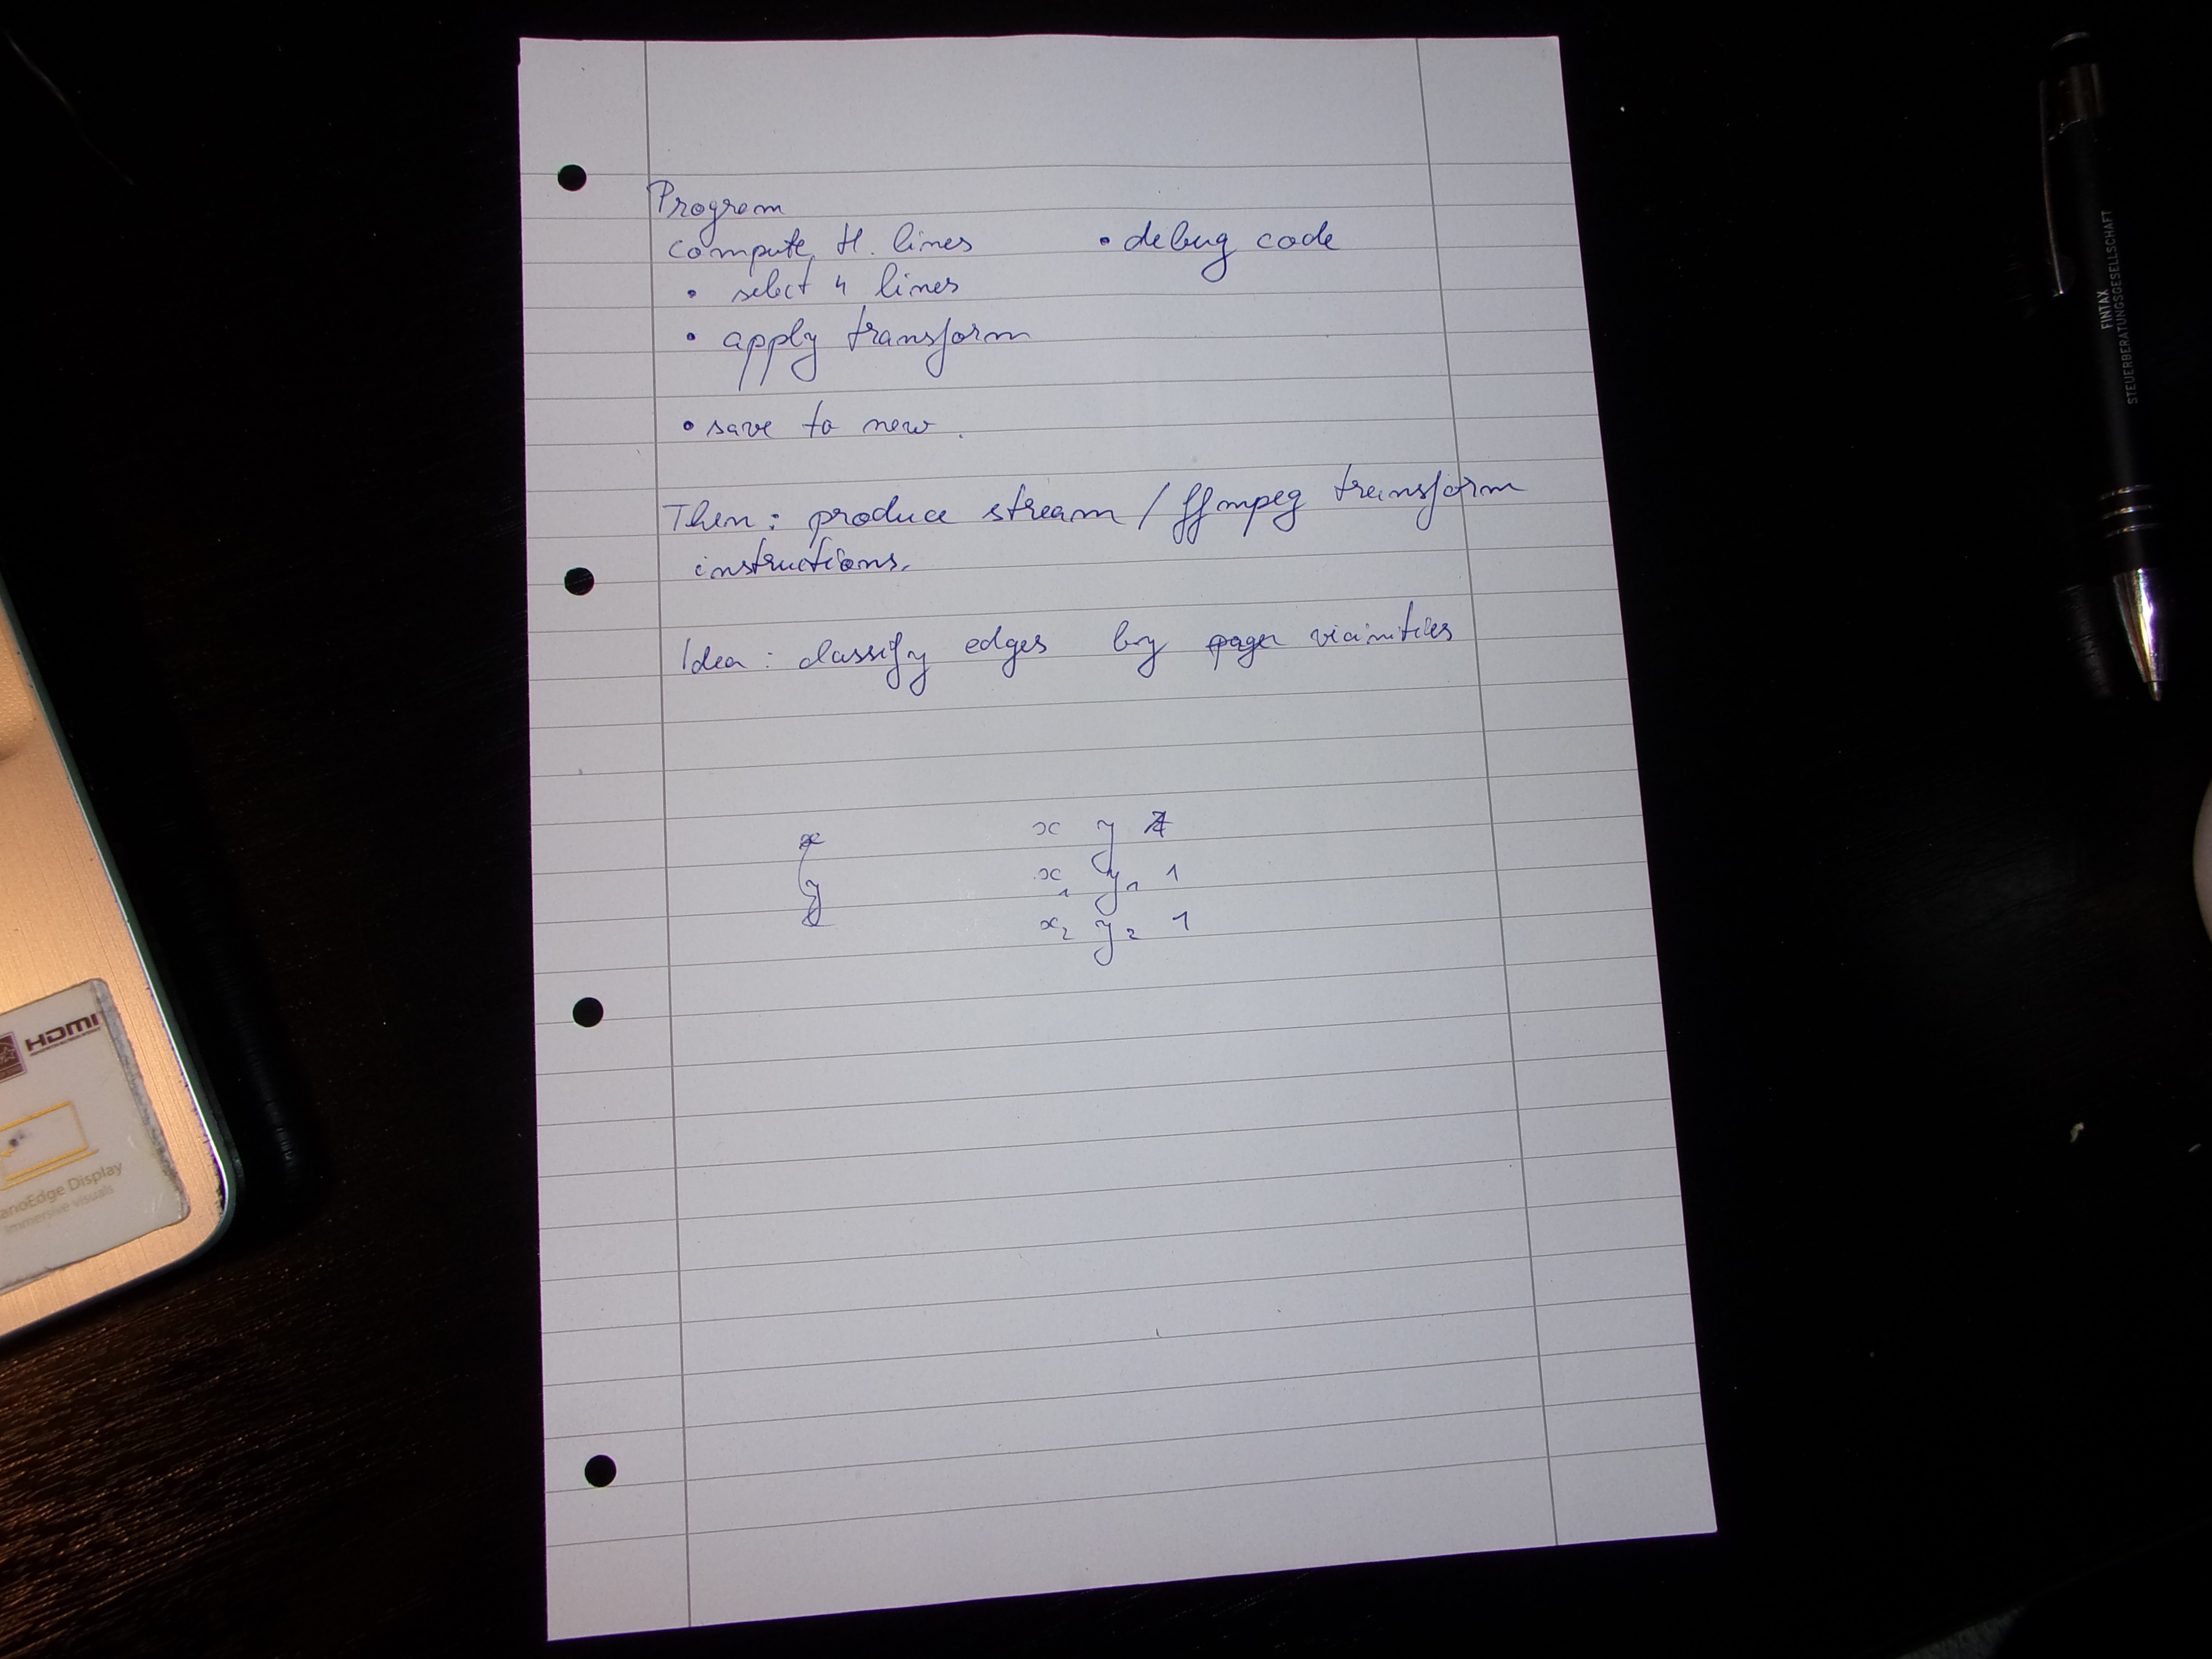 Program
compute H. lines
• debug code
• select 4 lines
• apply transform
• save to new.
Then: produce stream / ffmpeg transform
instructions.
Idea: classify edges by vicinities
x
y
x y
x₁ y₁ 1
x₂ y₂ 1
HDMI
anoEdge Display
Immersive visuals
FINTAX
STEUERBERATUNGSGESELLSCHAFT